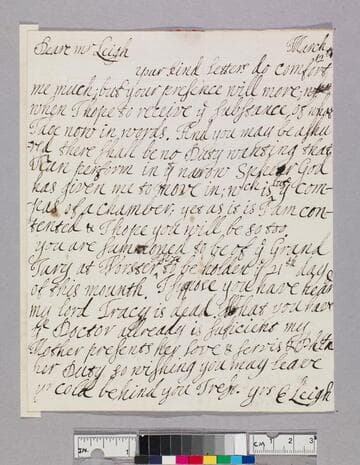 Deare mr Leigh March
your kind letters do comfort
me much, but your presence will more
when I hope to receive ye substance of what
I ace now in words. And you may be assu
red there shall be no Duty wanting that
I can perform in ye narow Spheer God
has given me to move in, wch is ye com-
pas of a chamber, yet as it is I am con-
tented & I hope you will be so too,
you are summoned to be of ye Grand
Jury at Worster, to be holden ye 21th day
of this mounth. I supose you have hear
my lord Tracy is dead, what you have
ye Doctor already is suficient my
Mother presents her love & servis
her Duty, so wishing you may leave
yr cold behind you I rest yrs E Leigh
IN. 1 CM 1 2 3